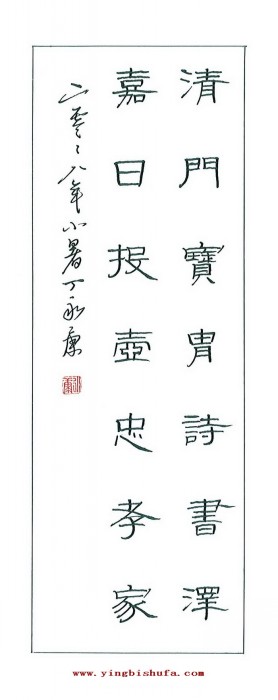 清門寶胄詩書澤
嘉日投壺忠孝家
二零零八年小暑丁永康
www.yingbishufa.com